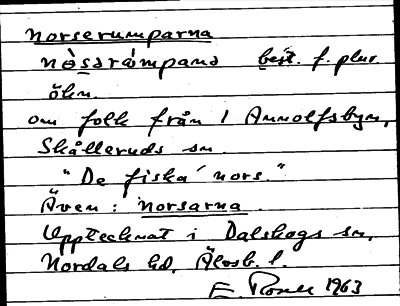 norserumparna
nòsərómpana best. f. plur.
ökn.
om folk från 1 Annolfsbyn,
Skålleruds sn.
"De fiska' nors."
Även: norsarna.
Upptecknat i Dalskogs sn,
Nordals hd, Älvsb. l.
E. 1963